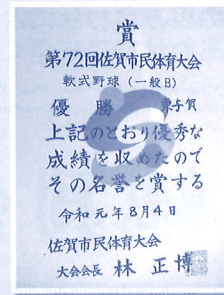 賞
第72回佐賀市民体育大会
軟式野球(一般B)
優勝 東与賀
上記のとおり優秀な
成績を収めたので
その名誉を賞する
令和元年8月4日
佐賀市民体育大会
大会会長 林 正博